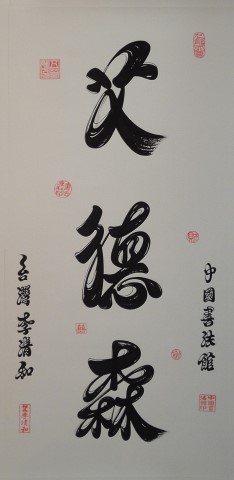 中國書法館
艾德森
台灣李清和